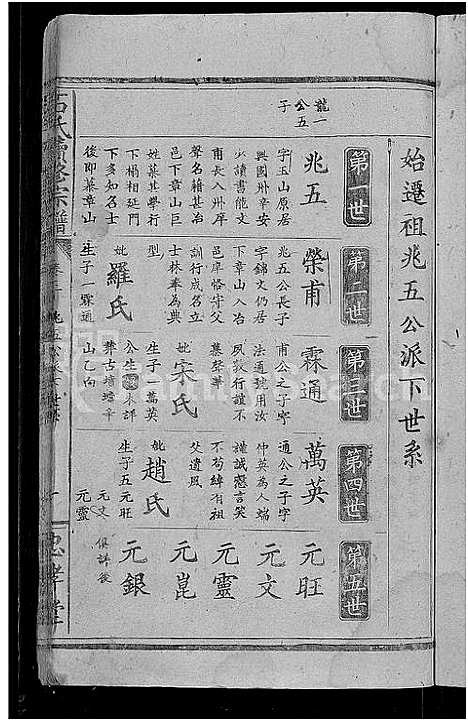 始遷祖兆五公派下世系
第一世
第二世
第三世
第四世
第五世
龍一
公五
子
兆五
字玉山原居
興國州辛安
少讀書能文
甫長入州庠
聲名籍甚冶
邑下章山巨
姓慕其學行
下榻相延門
下多知名士
後即葬章山
榮甫
兆五公長子
字錦文仍居
下章山入冶
邑庠恪守父
訓行成名立
士林奉為典
型
妣羅氏
生子一霖通
霖通
甫公之子字
法通號用汝
夙敦行誼不
慕榮華
妣宋氏
生子一萬英
公生
葬古塘塆辛
山乙向
萬英
通公之子字
仲英為人端
謹誠慤言笑
不苟綽有祖
父遺風
妣趙氏
生子五元旺
元文
元靈
元旺
元文
元靈
元崑
元銀
俱詳後
氏續修宗譜
兆五公派下世系
忠孝堂